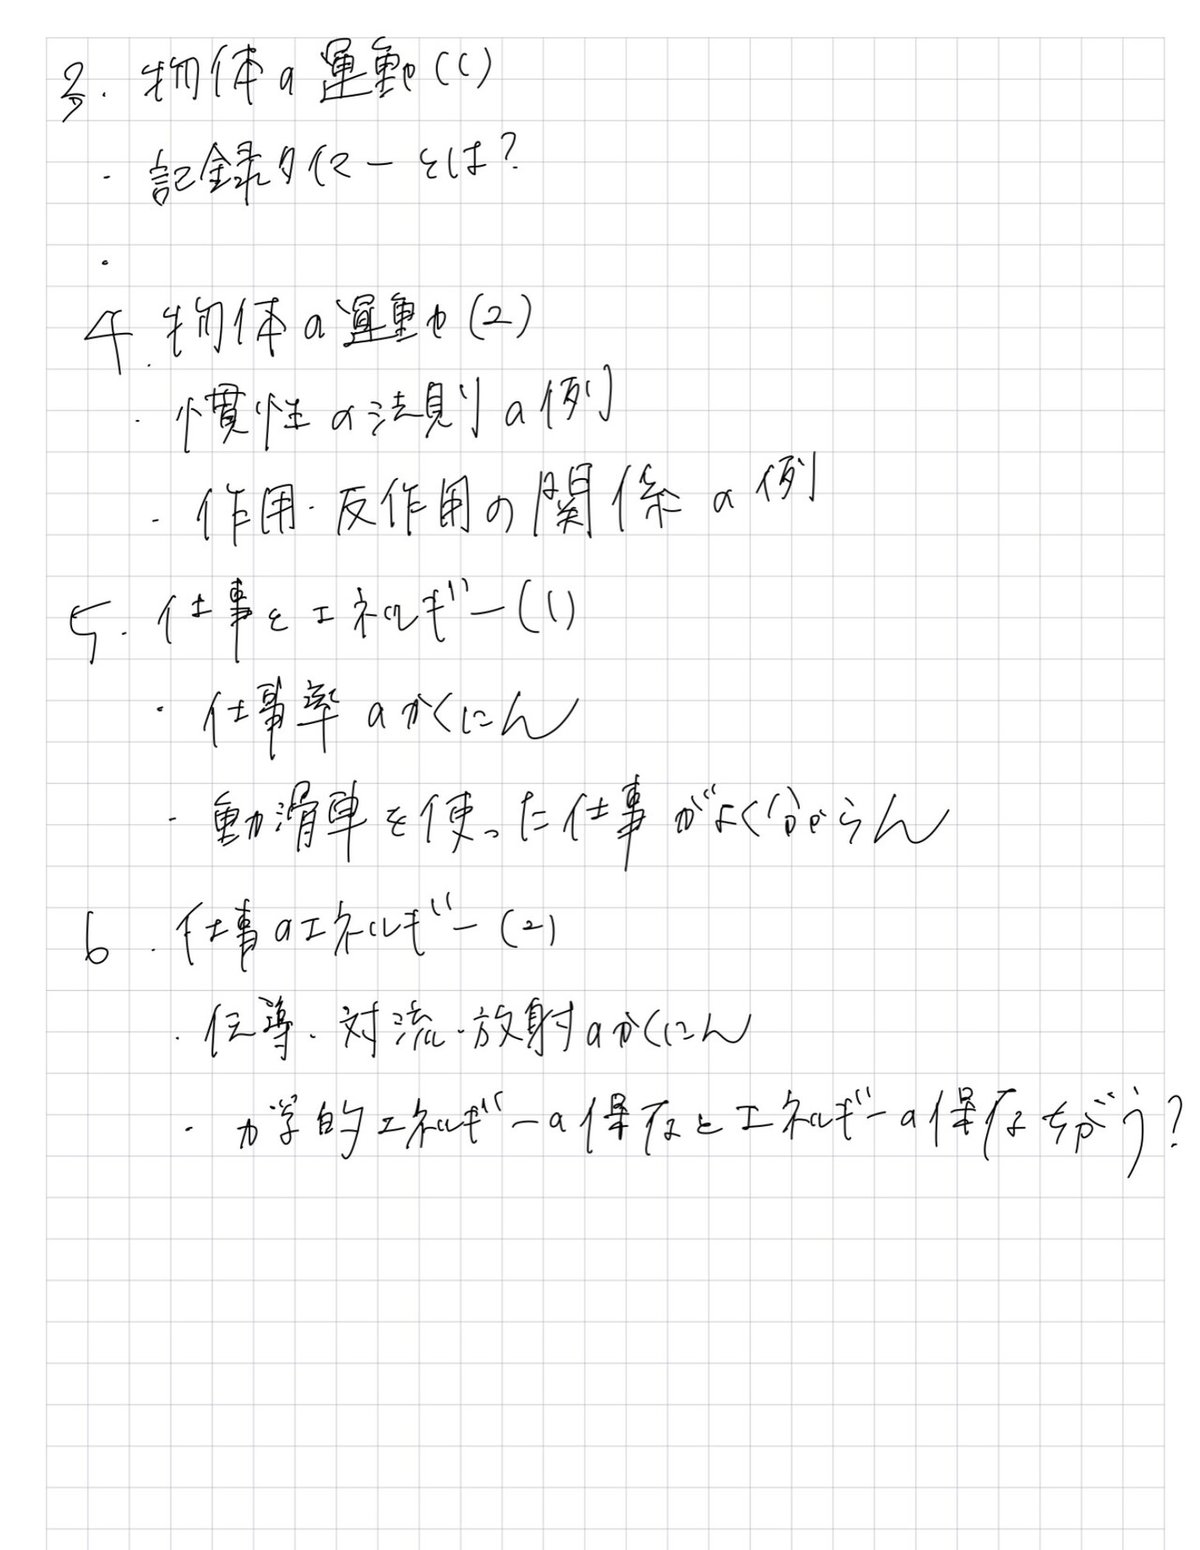 3. 物体の運動(1)
・記録タイマーとは?
・
4. 物体の運動(2)
・慣性の法則の例
・作用・反作用の関係の例
5. 仕事とエネルギー(1)
・仕事率のかくにん
・動滑車を使った仕事がよく分からん
6. 仕事のエネルギー(2)
・伝導・対流・放射のかくにん
・力学的エネルギーの保存とエネルギーの保存ちがう?